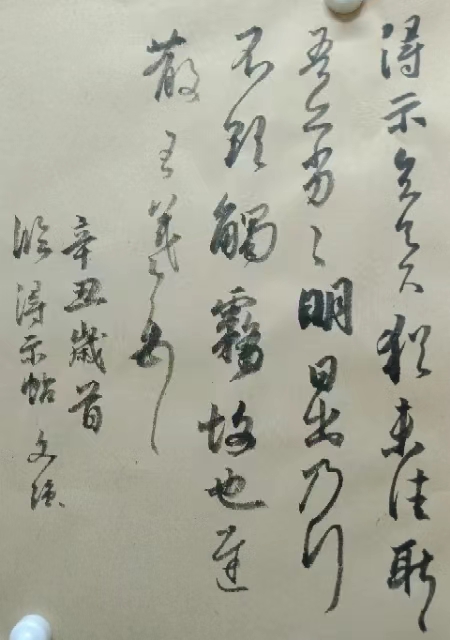 得示知足下猶未佳耿〻
吾亦劣〻明日出乃行
不欲觸霧故也遲
散王羲之頓首
辛丑歲首
臨得示帖 文